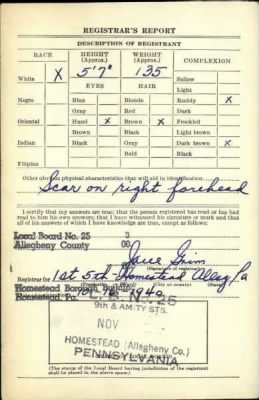 REGISTRAR'S REPORT
DESCRIPTION OF REGISTRANT
RACE HEIGHT (Approx.) WEIGHT (Approx.) COMPLEXION
White X 5'7" 135 Sallow
EYES HAIR Light
Negro Blue Blonde Ruddy X
Gray Red Dark
Oriental Hazel X Brown X Freckled
Brown Black Light brown
Indian Black Gray Dark brown X
Bald Black
Filipino
Other obvious physical characteristics that will aid in identification
Scar on right forehead
I certify that my answers are true; that the person registered has read or has had
read to him his own answers; that I have witnessed his signature or mark and that
all of his answers of which I have knowledge are true, except as follows:
Local Board No. 25 3
Allegheny County 00
Grim
(Signature of registrar)
Registrar for 1st 5th Homestead Pa
(City or county) (State)
Homestead Borough Building
Homestead, Pa. 1940
L. B. No. 25
9th & AMITY STS.
NOV
HOMESTEAD (Allegheny Co.)
PENNSYLVANIA
(The stamp of the Local Board having jurisdiction of the registrant
shall be placed in the above space.)